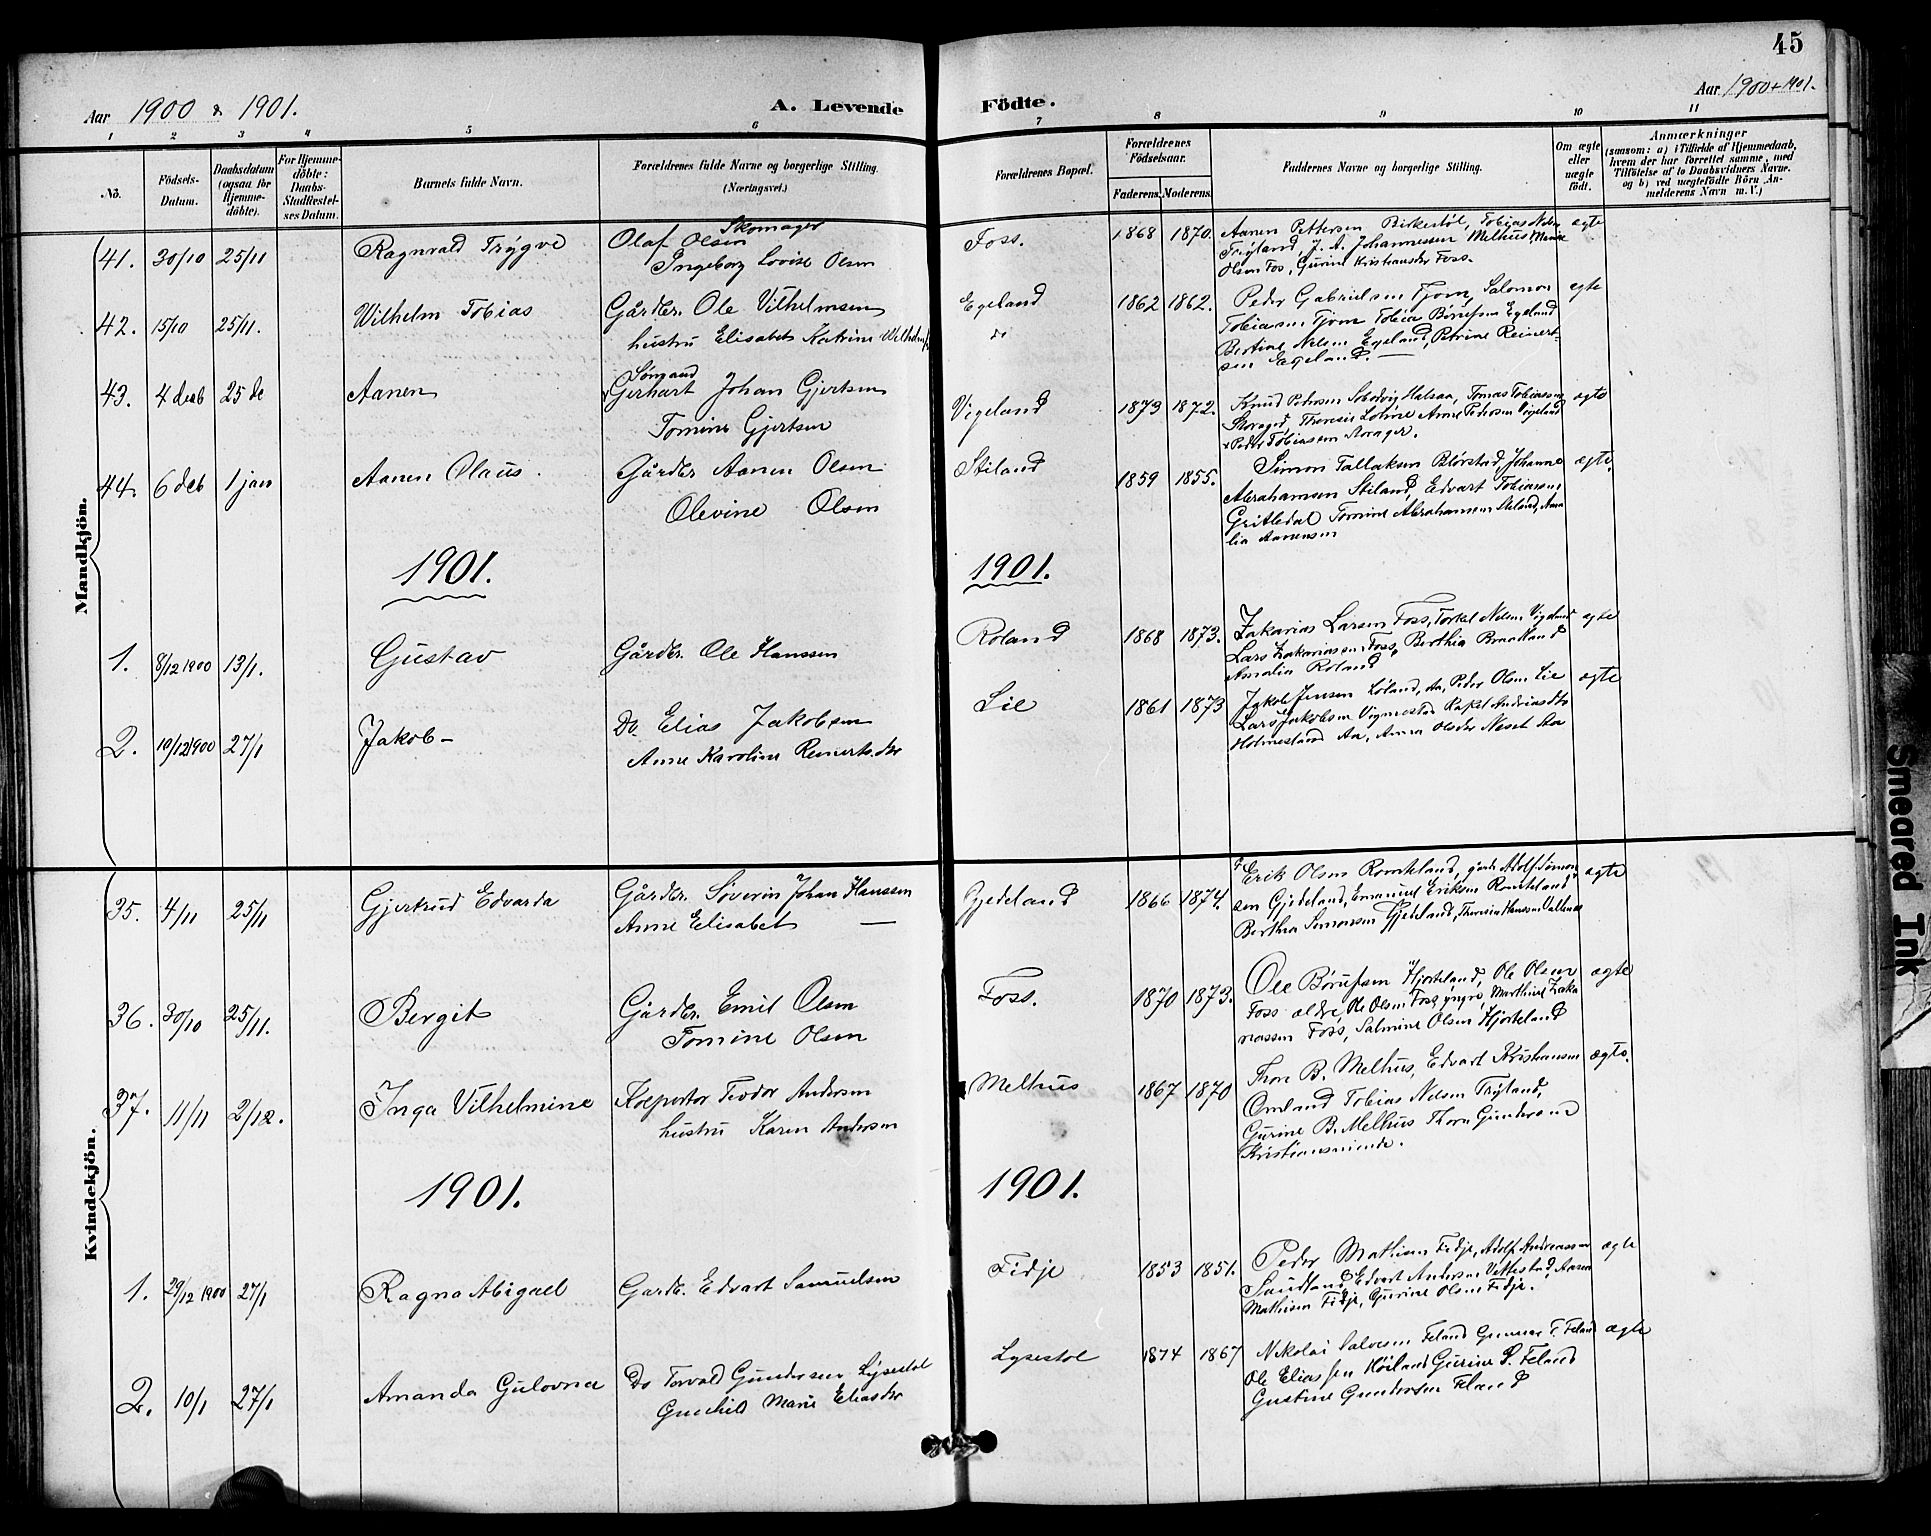 45
Aar 1900 & 1901.
A. Levende
Födte.
Aar 1900+1901.
1 2 3 4 5 6 7 8 9 10 11
No.
Födsels-
Datum.
Daabsdatum
(ogsaa for
Hjemme-
döbte).
For Hjemme-
döbte:
Daabs-
Stadfæstel-
ses Datum.
Barnets fulde Navn.
Forældrenes fulde Navne og borgerlige Stilling.
(Næringsvei.)
Forældrenes Bopæl.
Forældrenes
Födselsaar.
Faderens. Moderens.
Faddernes Navne og borgerlige Stilling.
Om ægte
eller
uægte
födt.
Anmærkninger
(saasom: a) i Tilfælde af Hjemmedaab,
hvem der har forrettet samme, med
Tilföielse af to Daabsvidners Navne.
og b) ved uægtefödte Börn An-
melderens Navn m. V.)
Mandkjön.
41. 30/10 25/11 Ragnvald Trygve
Skomager
Olaf Olsen
Ingeborg Lovise Olsen
Foss. 1868 1870.
Aanen Pettersen Birkestöl, Tobias Nelsen
Tryland, J. A. Johannessen Melhus,
Olsen Fos, Gurine Kristiansder Foss.
ægte
42. 15/10 25/11. Wilhelm Tobias
Gårdbr. Ole Vilhelmsen
hustru Elisabet Katrine
Egeland
do
1862 1862.
Peder Gabrielsen Tjom, Salomon
Tobiasen Tjom Tobias Börufsen Egeland
Bertine Nelsen Egeland, Petrine Reinert-
sen Egeland. —
egte
43. 4 decb 25 de Aanen
Sömand
Gerhart Johan Gjertsen
Tomine Gjertsen
Vigeland 1873 1872.
Knud Pedersen Halsaa, Tomas Tobiassen
Storaged, Theresie Anne Pedersen Vigeland
Peder Tobiassen
ægte
44. 6 deb 1 jan Aanen Olaus.
Gårdbr Aanen Olsen
Olevine Olsen
Stiland 1859 1855.
Simon Tallaksen Johanne
Abrahamsen Stiland, Edvart Tobiassen
Tomine Abrahamsen Stiland, Ama
lia Aanensen
ægte.
1901.
1901.
1. 8/12 1900 13/1. Gustav
Gårdbr. Ole Hanssen
Roland 1868 1873.
Zakarias Larsen Foss, Torkel Nelsen Vigeland
Lars Zakariassen Foss, Berthia Braatland
Amalia Roland
ægte
2. 19/12 1900 27/1 Jakob—
Do Elias Jakobsen
Anne Karoline Reinerts.der
Lie 1861 1873
Jakob Jensen Löland, Aa, Peder Olsen Lie
Lars Jakobsen Vigmestad Rakel Andreasdtr
Holmesland Aa, Anna Olsder Neset Aa
ægte
Kvindekjön.
35. 4/11 25/11 Gjertrud Edvarda
Gårdbr. Söverin Johan Hanssen
Anne Elisabet —
Gjedeland 1866 1874.
Erik Olsen Romteland, Adolf Simon-
sen Gjedeland, Emanuel Eriksen Romteland
Berthea Simonsen Gjedeland, Theresia Hanssen
ægte
36. 30/10 25/11. Bergit
Gårdbr. Emil Olsen
Tomine Olsen
Foss. 1870 1873.
Ole Börufsen Hjorteland, Ole Olsen
Foss ældre, Ole Olsen Foss yngre, Marthine Zaka
riassen Foss, Salmine Olsen Hjorteland
ægte
37. 11/11 2/12. Inga Vilhelmine
Kolportör Teodor Andersen
hustru Karen Andersen
Melhus 1867 1870
Thore B. Melhus, Edvart Kristiansen
Omland Tobias Nelsen Tryland,
Gurine B. Melhus Thora Gundersen
Kristiansminde.
ægte.
1901.
1901.
1. 29/12 1900 27/1 Ragna Abigael
Gardb. Edvart Samuelsen
Fidje 1853 1851.
Peder Mathisen Fidje, Adolf Andreassen
Saudland, Edvart Andersen Vittestad, Aasne
Mathisen Fidje, Gurine Olsen Fidje.
ægte
2. 10/1 27/1 Amanda Gulovna
Do Torvald Gundersen Lysestöl
Gunhild Marie Eliasder
Lysestöl 1874 1867
Nikolai Salvesen Feland Gunnar T. Feland
Ole Eliassen Höiland Gurine S. Feland
Gustine Gundersen Feland
ægte
Smeared Ink